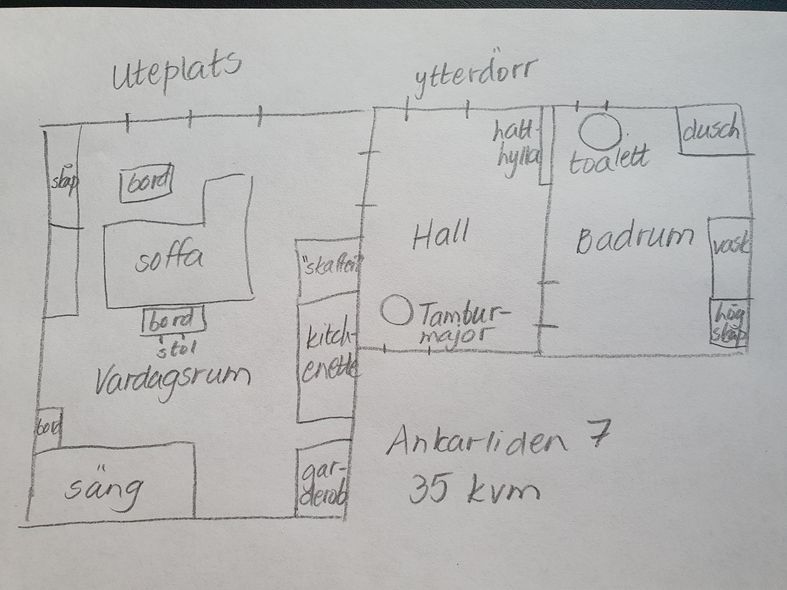 Uteplats
ytterdörr
skåp
bord
soffa
bord
stol
Vardagsrum
bord
säng
"skafferi"
kitch-
enette
gar-
derob
hatt-
hylla
Hall
Tambur-
major
toalett
dusch
Badrum
vask
hög
skåp
Ankarliden 7
35 kvm